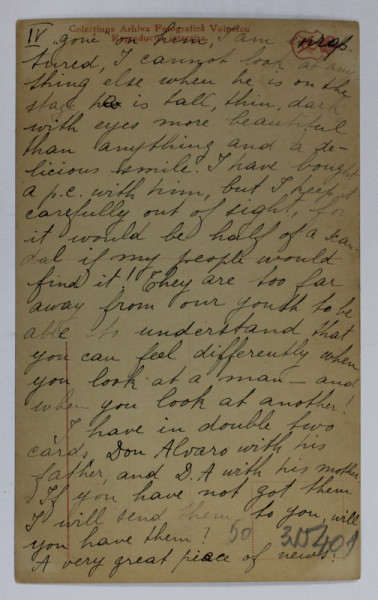 IV
Colecțiune Arhiva Fotografică Voinescu
Reproducerea interzisă
gone on him, I am
tured, I cannot look at any
thing else when he is on the
stage he is tall, thin, dark
with eyes more beautiful
than anything and a de-
licious smile. I have bought
a p.c. with him, but I keep it
carefully out of sight, for
it would be half of a scan-
dal if my people would
find it! They are too far
away from our youth to be
able to understand that
you can feel differently when
you look at a man – and
when you look at another!
I have in double two
cards, Don Alvaro with his
father, and D.A with his mother.
If you have not got them
I will send them to you, will
you have them? 50 315401
A very great piece of news: